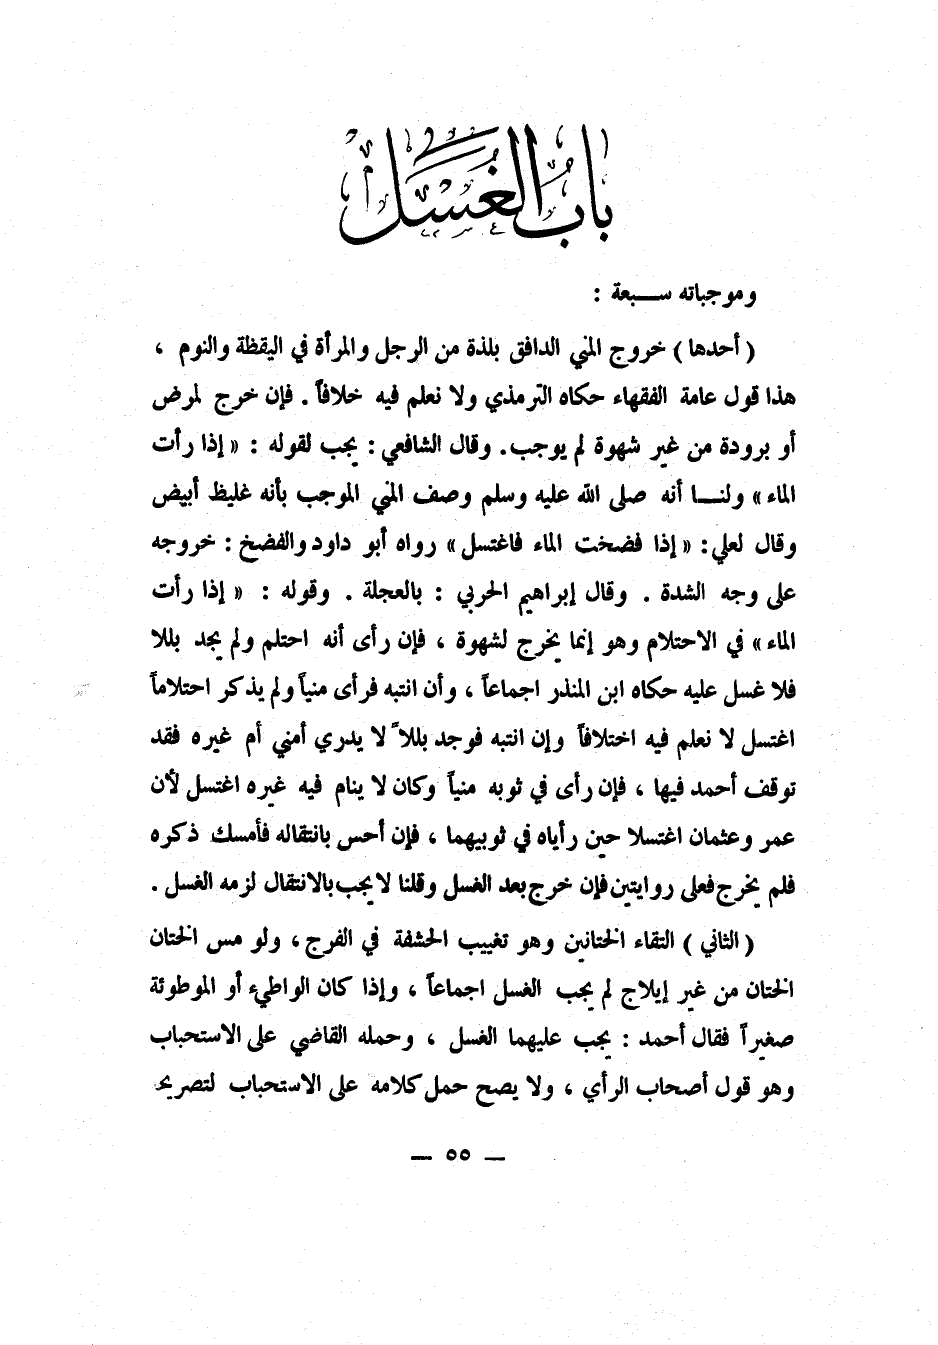 باب الغسل
وموجباته سبعة :
( أحدها ) خروج المني الدافق بلذة من الرجل والمرأة في اليقظة والنوم ،
هذا قول عامة الفقهاء حكاه الترمذي ولا نعلم فيه خلافاً . فإن خرج لمرض
أو برودة من غير شهوة لم يوجب . وقال الشافعي : يجب لقوله : « إذا رأت
الماء » ولنا أنه صلى الله عليه وسلم وصف المني الموجب بأنه غليظ أبيض
وقال لعلي : « إذا فضخت الماء فاغتسل » رواه أبو داود والفضخ : خروجه
على وجه الشدة . وقال إبراهيم الحربي : بالعجلة . وقوله : « إذا رأت
الماء » في الاحتلام وهو إنما يخرج لشهوة ، فإن رأى أنه احتلم ولم يجد بللا
فلا غسل عليه حكاه ابن المنذر اجماعاً ، وأن انتبه فرأى منياً ولم يذكر احتلاماً
اغتسل لا نعلم فيه اختلافاً وإن انتبه فوجد بللاً لا يدري أمني أم غيره فقد
توقف أحمد فيها ، فإن رأى في ثوبه منياً وكان لا ينام فيه غيره اغتسل لأن
عمر وعثمان اغتسلا حين رأياه في ثوبيهما ، فإن أحس بانتقاله فأمسك ذكره
فلم يخرج فعلى روايتين فإن خرج بعد الغسل وقلنا لا يجب بالانتقال لزمه الغسل .
( الثاني ) التقاء الختانين وهو تغييب الحشفة في الفرج ، ولو مس الختان
الختان من غير إيلاج لم يجب الغسل اجماعاً ، وإذا كان الواطيء أو الموطوئة
صغيراً فقال أحمد : يجب عليهما الغسل ، وحمله القاضي على الاستحباب
وهو قول أصحاب الرأي ، ولا يصح حمل كلامه على الاستحباب لتصريحـ
— ٥٥ —